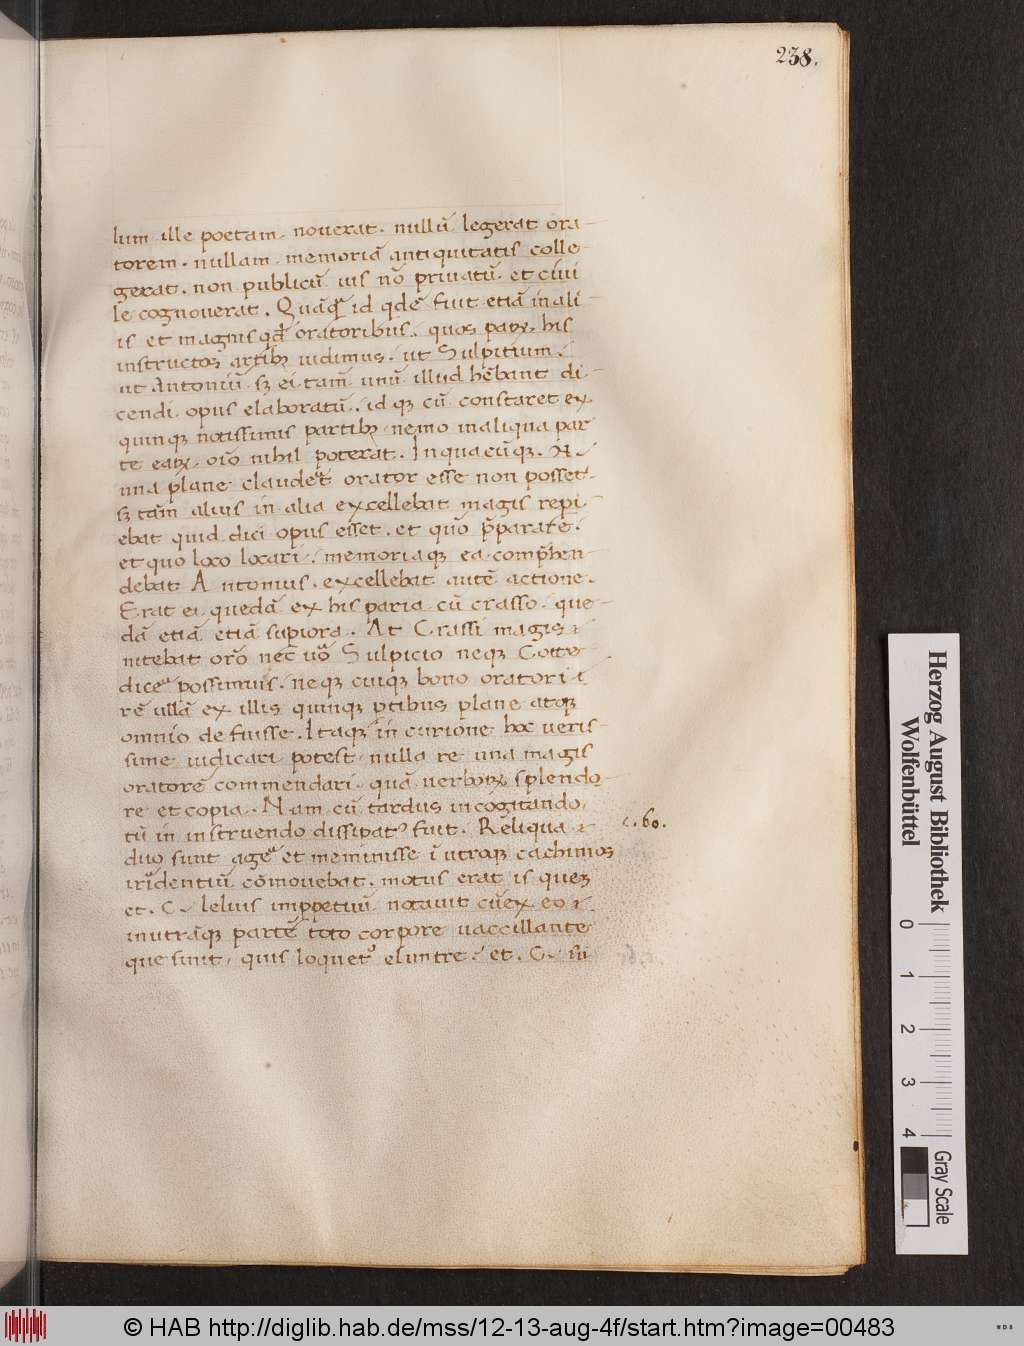 238.
lum ille poetam. noverat. nullū legerat ora-
torem. nullam. memoriā antiquitatis colle-
gerat. non publicū ius nō privatū. et civi
le cognoverat. Quāqꝫ id qdē fuit etiā in ali-
is et magnis oratoribus. quos parꝫ his
instructos artibꝫ vidimus. ut Sulpitium.
ut Antoniū. sꝫ ei tam̄ unū illud hēbant di-
cendi. opus elaboratū. id qꝫ cū constaret ex
quinqꝫ notissimis partibꝫ. nemo in aliqua par
te eaꝝ. oīo nihil poterat. In quacūqꝫ. N.
una plane clauderet orator esse non posset.
sꝫ tam̄ alius in alia excellebat magis reperi-
ebat quid dici opus esset. et quō p̄parare.
et quo loco locari. memoriaqꝫ ea comp̄hen-
debat Antonius. excellebat autē actione.
Erat ei quedā ex his paria cū crasso. que-
dā etiā etiā supiora. At Crassi magis
nitebat orō nec̄ uō Sulpicio neqꝫ Cotte
dicē possumus. neqꝫ cuiqꝫ bono oratori i
rē ullā ex illis quinqꝫ ptibus plane atqꝫ
omnio de fuisse. Itaqꝫ in curione hoc veris-
sime iudicari potest. nulla re una magis
oratorē commendari. quā verboꝝ splendo-
re et copia. Nam cū tardus in cogitando.
tū in instruendo dissipatꝰ fuit. Reliqua
c. 60.
duo sunt agē et meminisse ī utroqꝫ cachinnos
irridentiū cōmovebat. motus erat is quez
et. C. lelius imppetuū notavit cū ex eo
in utrāqꝫ partē toto corpore vaccillante
que sivit. quis loquetꝰ eluntre. et. C. sii
Herzog August Bibliothek
Wolfenbüttel
0
1
2
3
4
Gray Scale
© HAB http://diglib.hab.de/mss/12-13-aug-4f/start.htm?image=00483